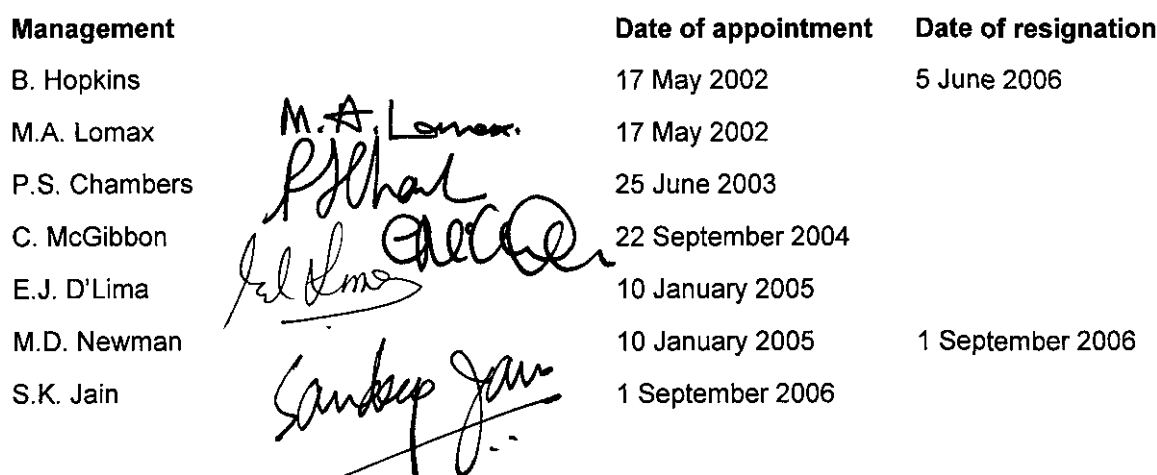 Management Date of appointment Date of resignation
B. Hopkins 17 May 2002 5 June 2006
M.A. Lomax M.A. Lomax. 17 May 2002
P.S. Chambers 25 June 2003
C. McGibbon 22 September 2004
E.J. D'Lima 10 January 2005
M.D. Newman 10 January 2005 1 September 2006
S.K. Jain Sandeep Jain 1 September 2006